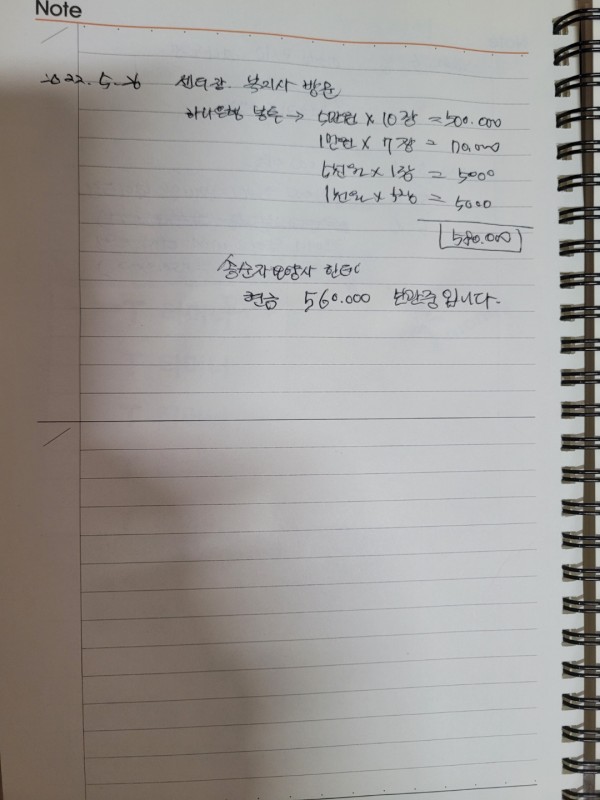 Note
2022.5.26 센터장 복지사 방문
하나은행 봉투 → 5만원 x 10장 = 500.000
1만원 x 7장 = 70.000
5천원 x 1장 = 5000
1천원 x 5장 = 5000
580.000
송순자요양사 한테
현금 560.000 보관중입니다.